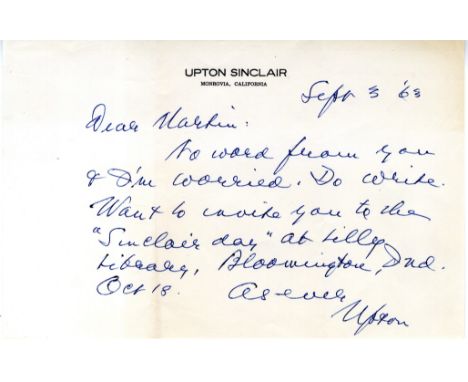 UPTON SINCLAIR
MONROVIA, CALIFORNIA
Sept 3 '63
Dear Martin:
No word from you
& I'm worried. Do write.
Want to invite you to the
"Sinclair day" at Lilly
Library, Bloomington, Ind.
Oct 18. As ever
Upton